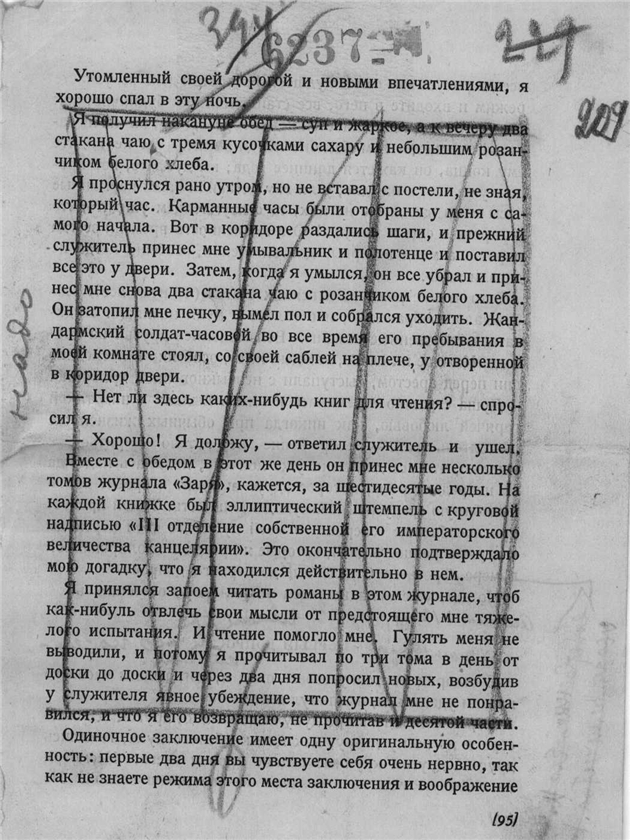 394
6237
229
209
Утомленный своей дорогой и новыми впечатлениями, я
хорошо спал в эту ночь.
Я получил накануне обед — суп и жаркое, а к вечеру два
стакана чаю с тремя кусочками сахару и небольшим розан-
чиком белого хлеба.
Я проснулся рано утром, но не вставал с постели, не зная,
который час. Карманные часы были отобраны у меня с са-
мого начала. Вот в коридоре раздались шаги, и прежний
служитель принес мне умывальник и полотенце и поставил
все это у двери. Затем, когда я умылся, он все убрал и при-
нес мне снова два стакана чаю с розанчиком белого хлеба.
Он затопил мне печку, вымел пол и собрался уходить. Жан-
дармский солдат-часовой во все время его пребывания в
моей комнате стоял, со своей саблей на плече, у отворенной
в коридор двери.
— Нет ли здесь каких-нибудь книг для чтения? — спро-
сил я.
— Хорошо! Я доложу, — ответил служитель и ушел.
Вместе с обедом в этот же день он принес мне несколько
томов журнала «Заря», кажется, за шестидесятые годы. На
каждой книжке был эллиптический штемпель с круговой
надписью «III отделение собственной его императорского
величества канцелярии». Это окончательно подтверждало
мою догадку, что я находился действительно в нем.
Я принялся запоем читать романы в этом журнале, чтоб
как-нибуль отвлечь свои мысли от предстоящего мне тяже-
лого испытания. И чтение помогло мне. Гулять меня не
выводили, и потому я прочитывал по три тома в день от
доски до доски и через два дня попросил новых, возбудив
у служителя явное убеждение, что журнал мне не понра-
вился, и что я его возвращаю, не прочитав и десятой части.
Одиночное заключение имеет одну оригинальную особен-
ность: первые два дня вы чувствуете себя очень нервно, так
как не знаете режима этого места заключения и воображение
(95)
надо